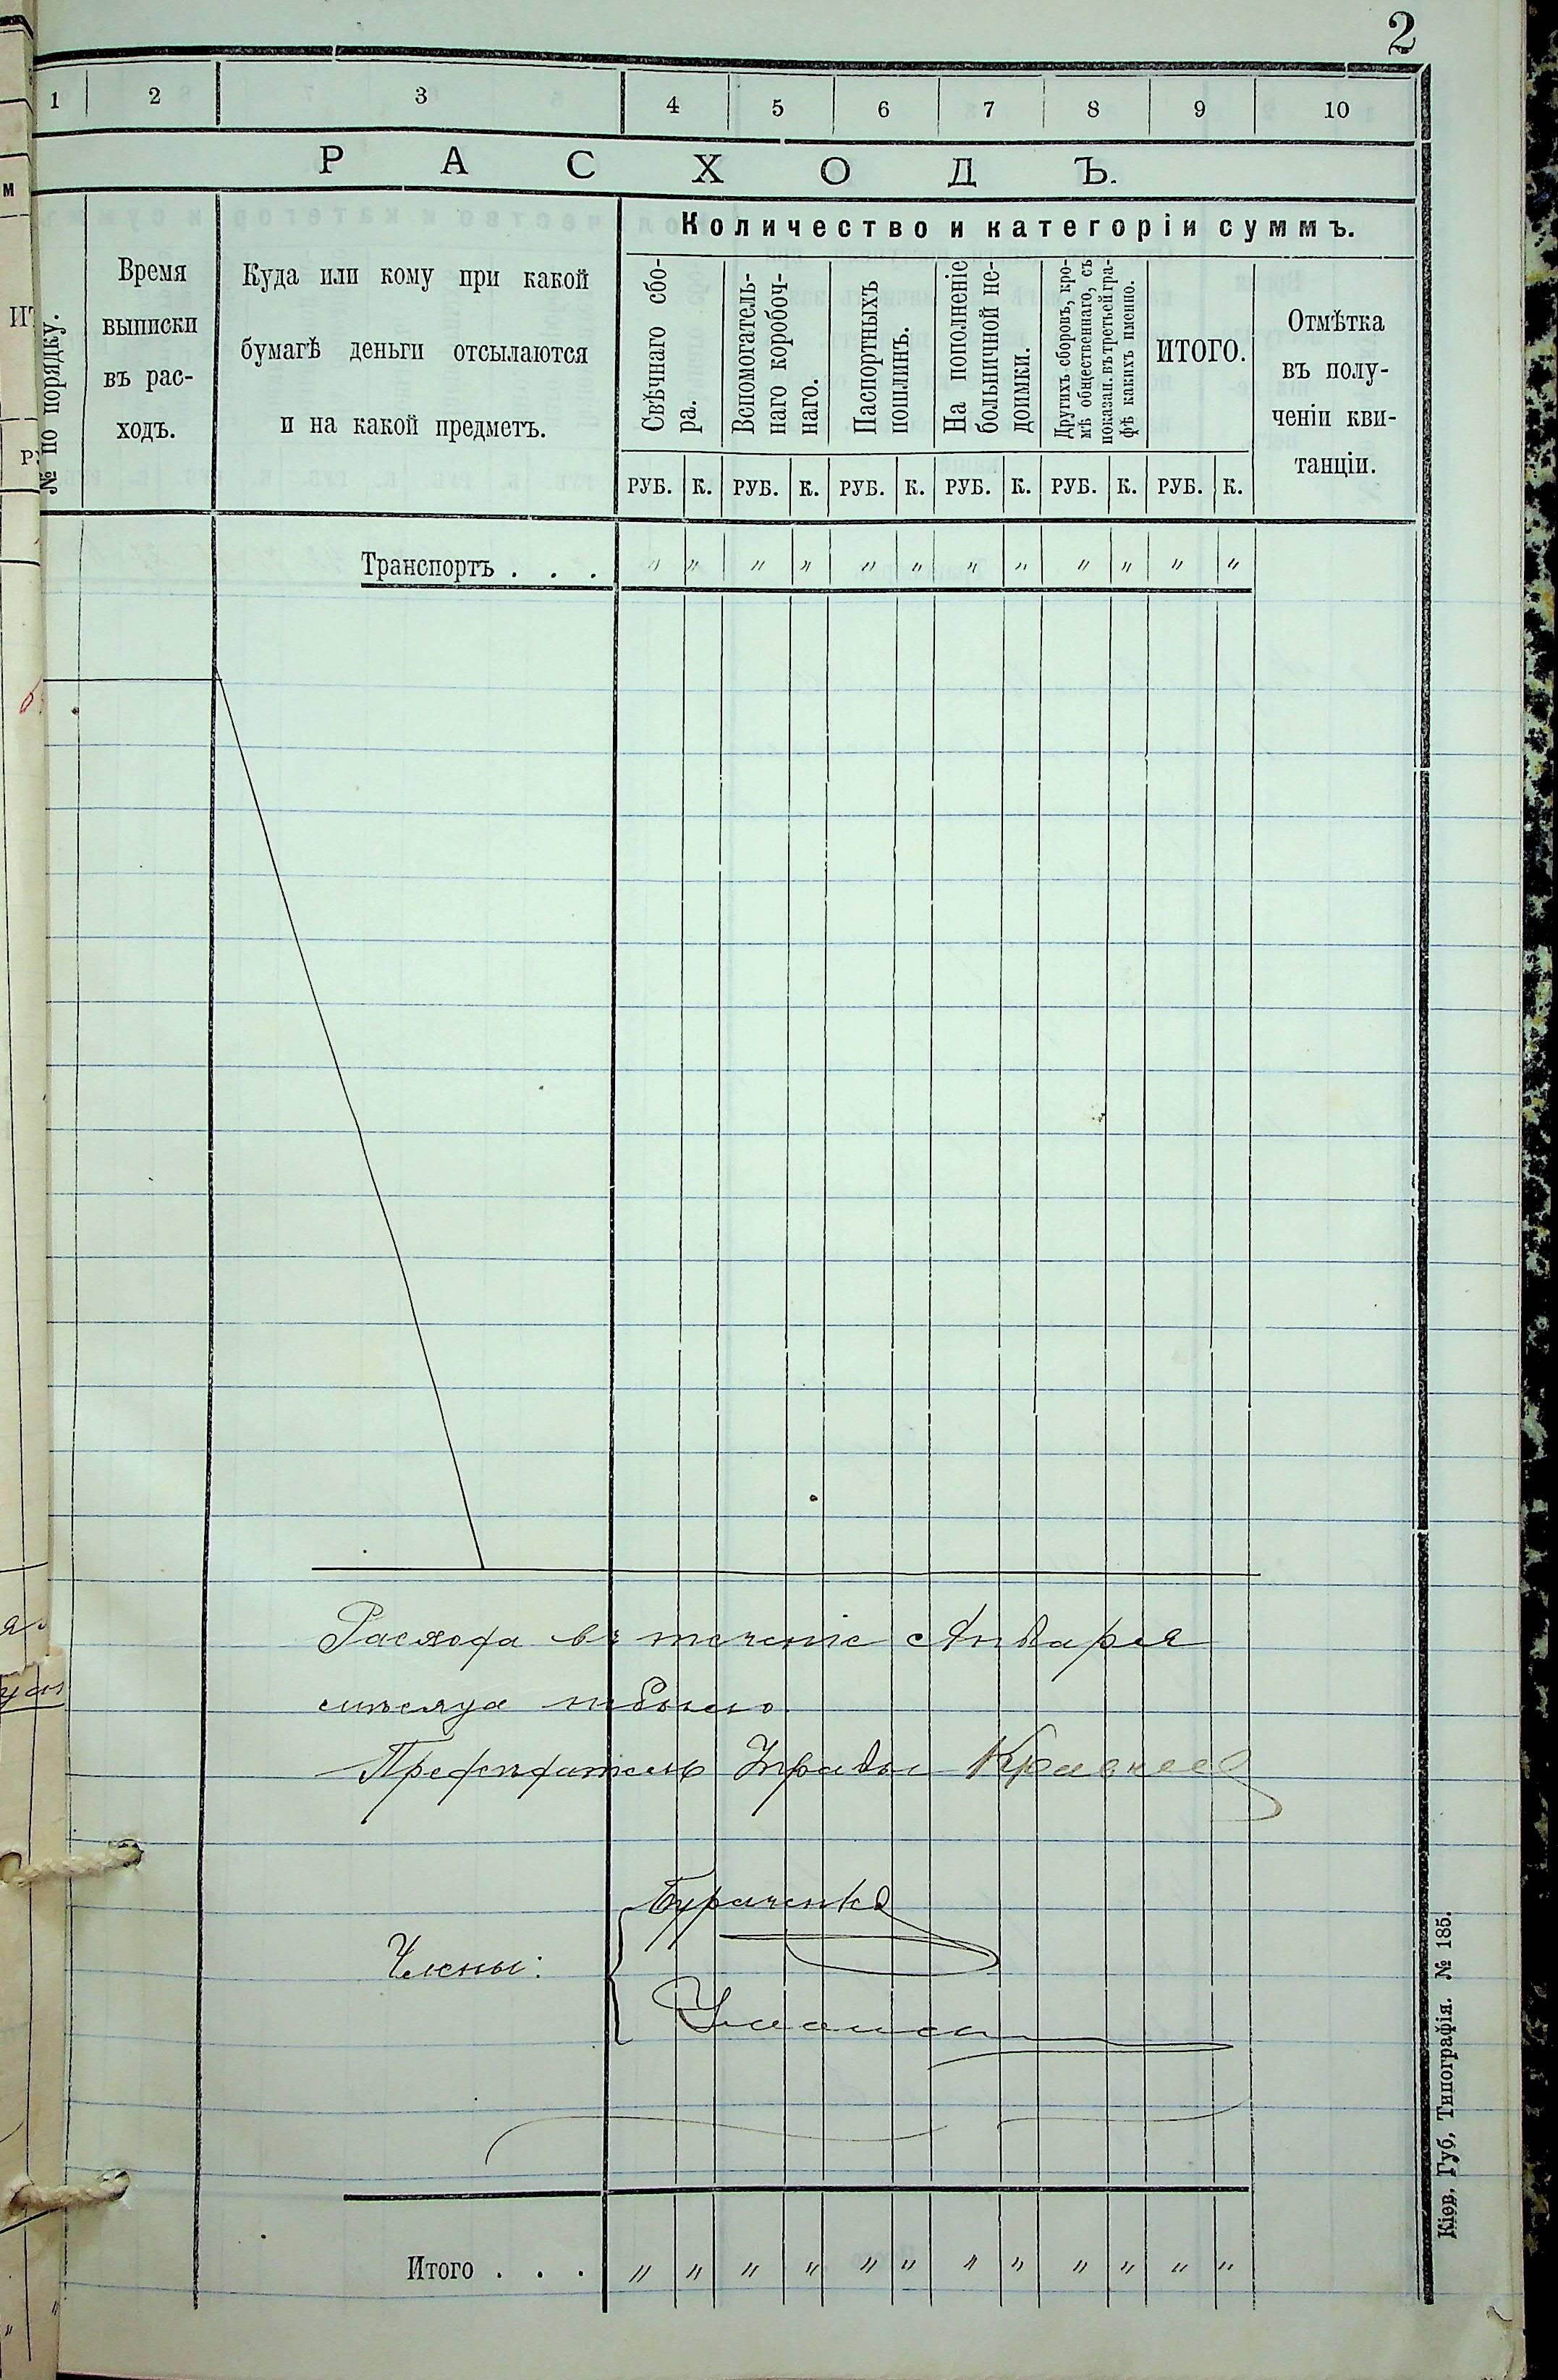 2
1 2 3 4 5 6 7 8 9 10
РАСХОДЪ.
№ по порядку.
Время
выписки
въ рас-
ходъ.
Куда или кому при какой
бумагѣ деньги отсылаются
и на какой предметъ.
Количество и категоріи суммъ.
Свѣчнаго сбо-
ра.
Вспомогатель-
наго коробоч-
наго.
Паспортныхъ
пошлинъ.
На пополненіе
больничной не-
доимки.
Другихъ сборовъ, кро-
мѣ общественнаго, съ
показан. въ третьей гра-
фѣ какихъ именно.
ИТОГО.
Отмѣтка
въ полу-
ченіи кви-
танціи.
РУБ. К. РУБ. К. РУБ. К. РУБ. К. РУБ. К. РУБ. К.
Транспортъ . . . " " " " " " " " " " " "
Расхода въ теченіе Января
мѣсяца небыло.
Предсѣдатель Управы
Члены:
Итого . . . " " " " " " " " " " " "
Кіев. Губ. Типографія. № 185.